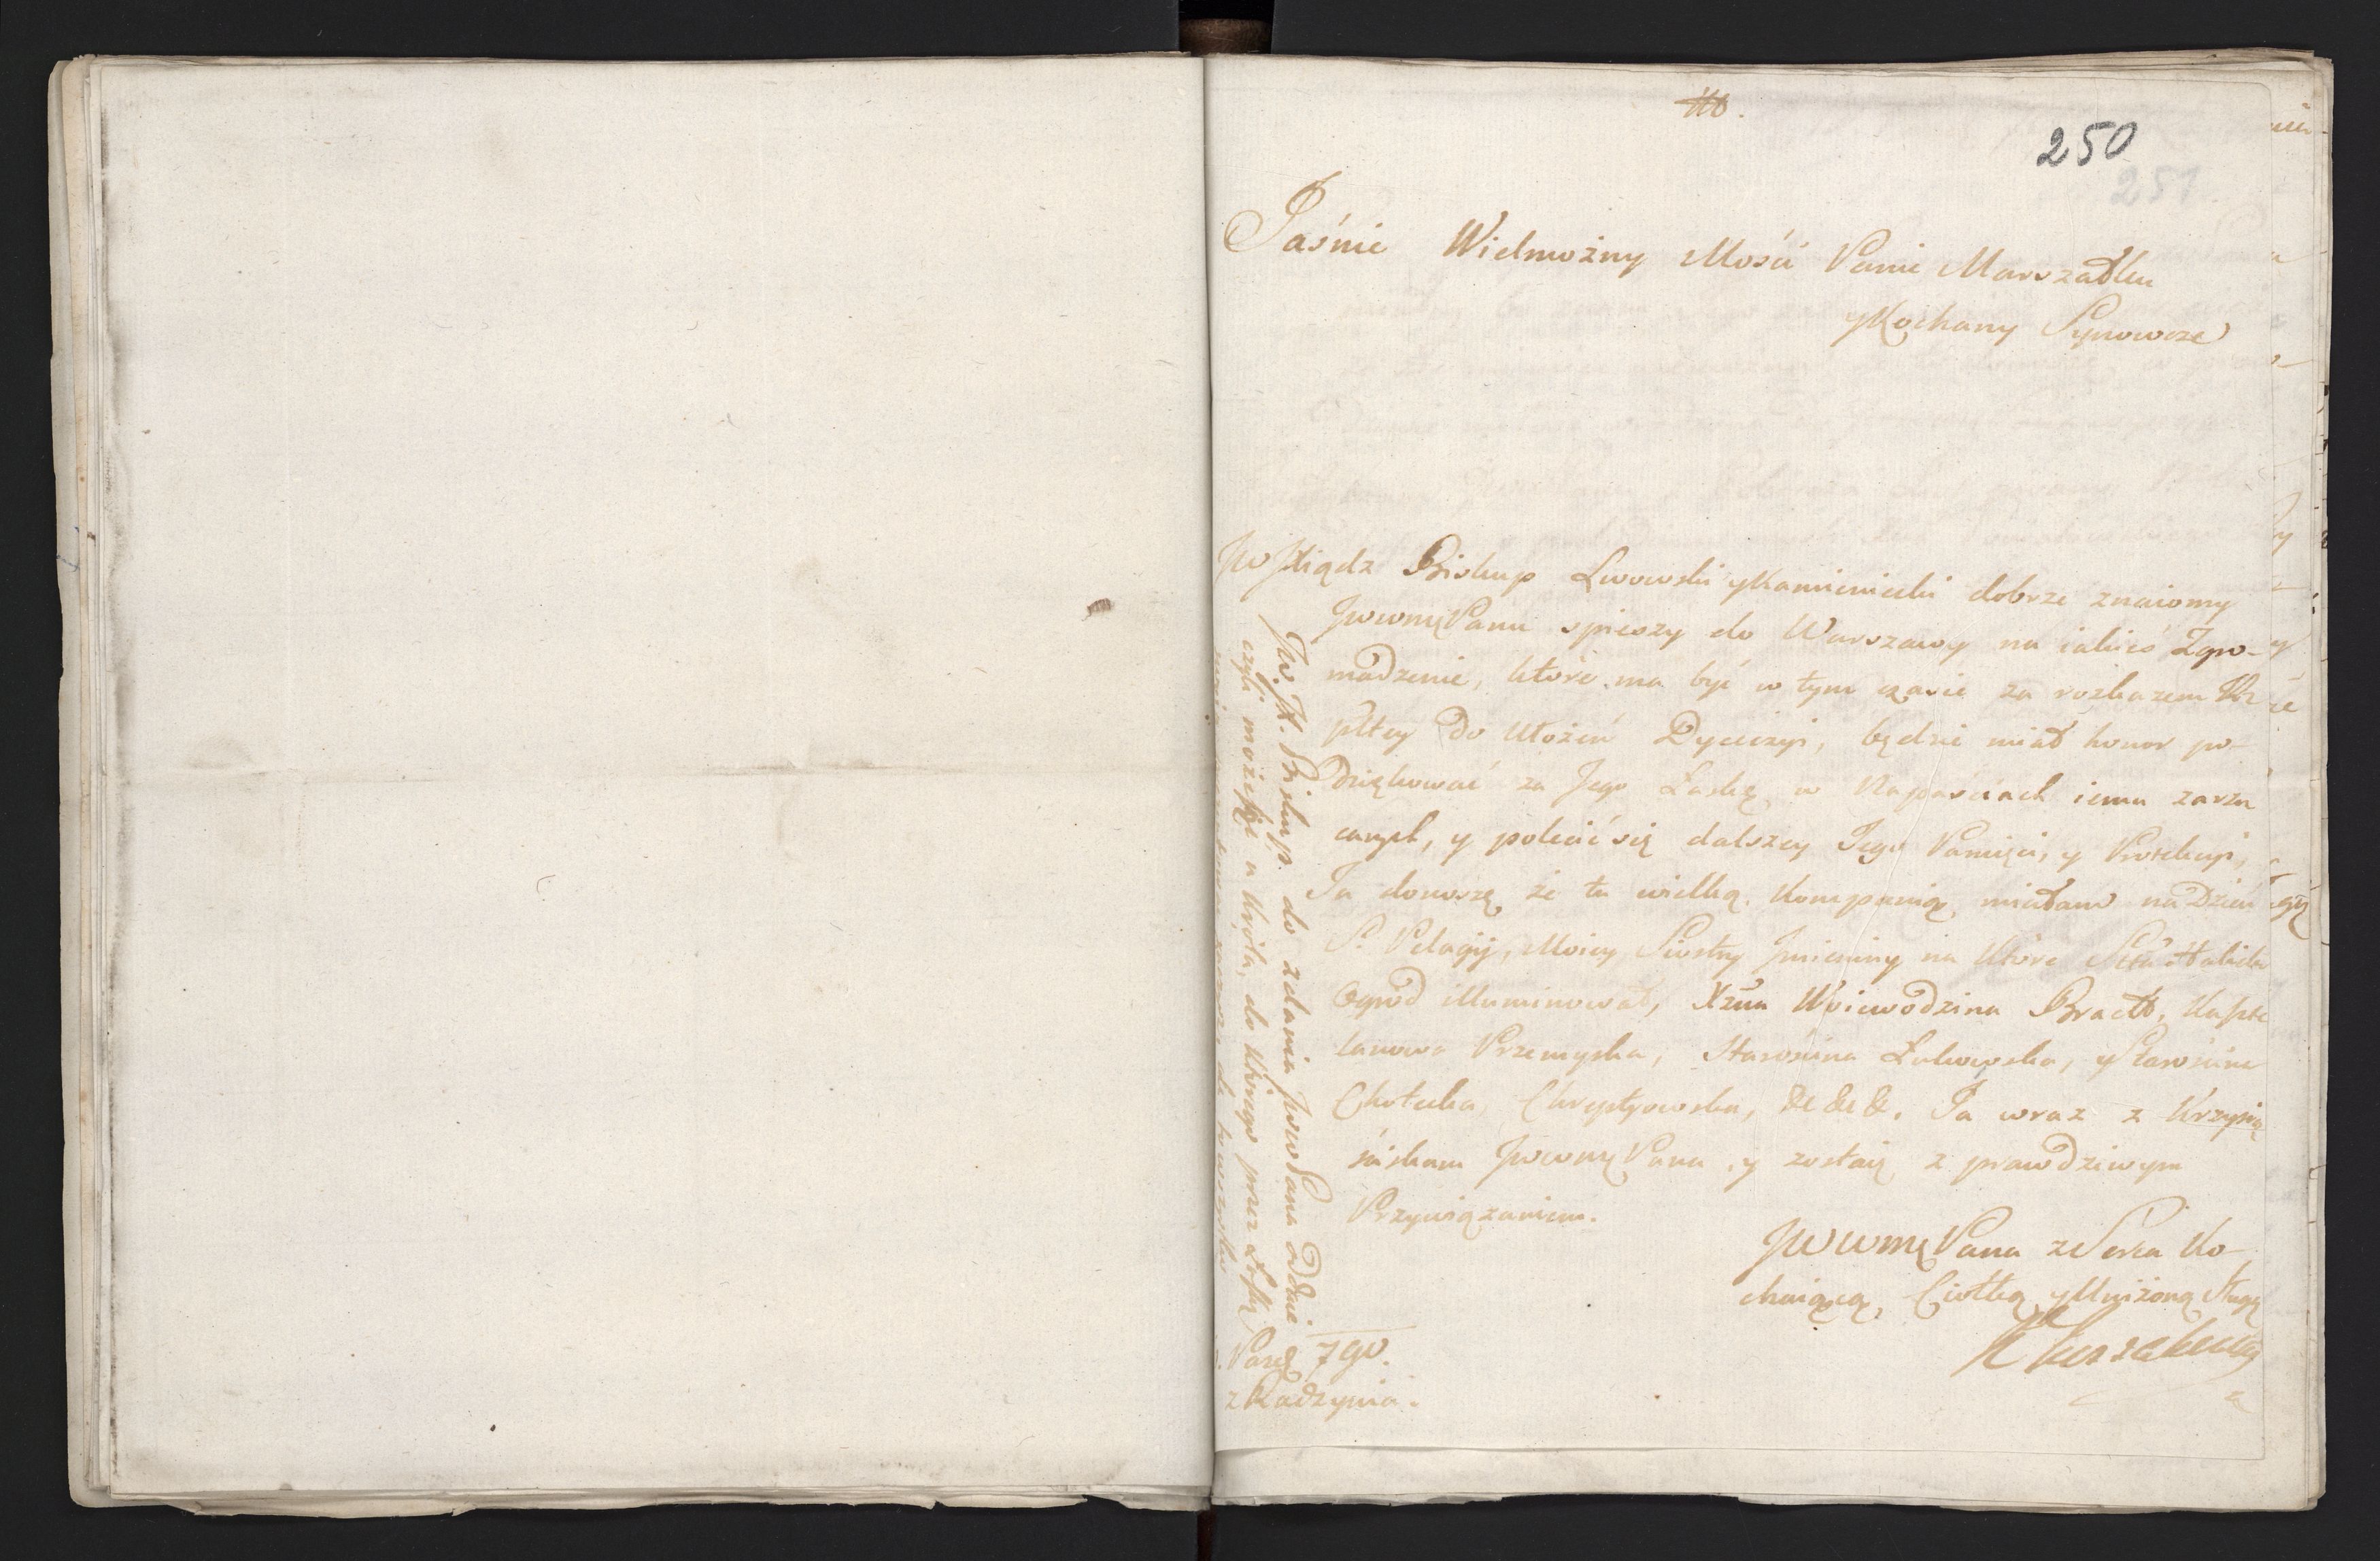 110.
250
251
Jaśnie Wielmożny Mości Panie Marszałku
y Kochany Synowcze
JW JXiądz Biskup Lwowski y Kamieniecki dobrze znaiomy
JWWmę Panu spieszy do Warszawy na iakieś Zgro-
madzenie, które ma być w tym czasie za rozkazem Rz
pltey do Ułożeń Dyecezyi, będzie miał honor po-
dziękować za Jego Łaskę w Napaściach iemu zarzu
canych, y polecić się dalszey Jego Pamięci, y Protekcyi,
Ja donoszę że tu wielką Kompanią miałam na Dzień
S. Pelagij, Moiey Siostry Jmieniny na które Halicki
Ogród illuminował, Xżna Woiewodzina Bracł, Kaszte
lanowa Przemyska, Starościna Łukowska, y Starościna
Chotecka, Chreptyowska, &c &c &. Ja wraz z Krzysią
ściskam JWWmę Pana, y zostaię z prawdziwym
Przywiązaniem.
JWWmę Pana z Serca Ko-
chaiącą Ciotką y Uniżoną Sługą
7 go.
z Radzynia.
JW. JX. Biskup do zdania JWW Pana odda się
czyli może być u Króla, do którego przez Łaskę